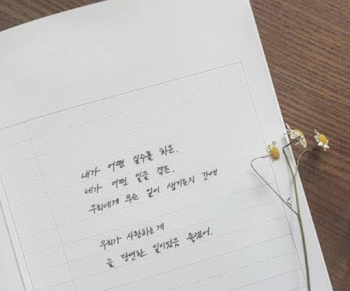 내가 어떤 실수를 하든.
네가 어떤 일을 겪든.
우리에게 무슨 일이 생기든지 간에
우리가 사랑하는게
늘 당연한 일이었음 좋겠어.